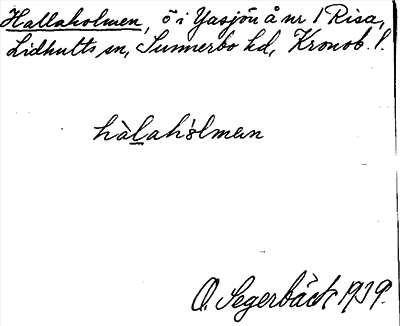 Hallaholmen, ö i Yasjön å nr 1 Risa,
Lidhults sn, Sunnerbo hd, Kronob. l.
hàlahòlman
O. Segerbäck 1939.